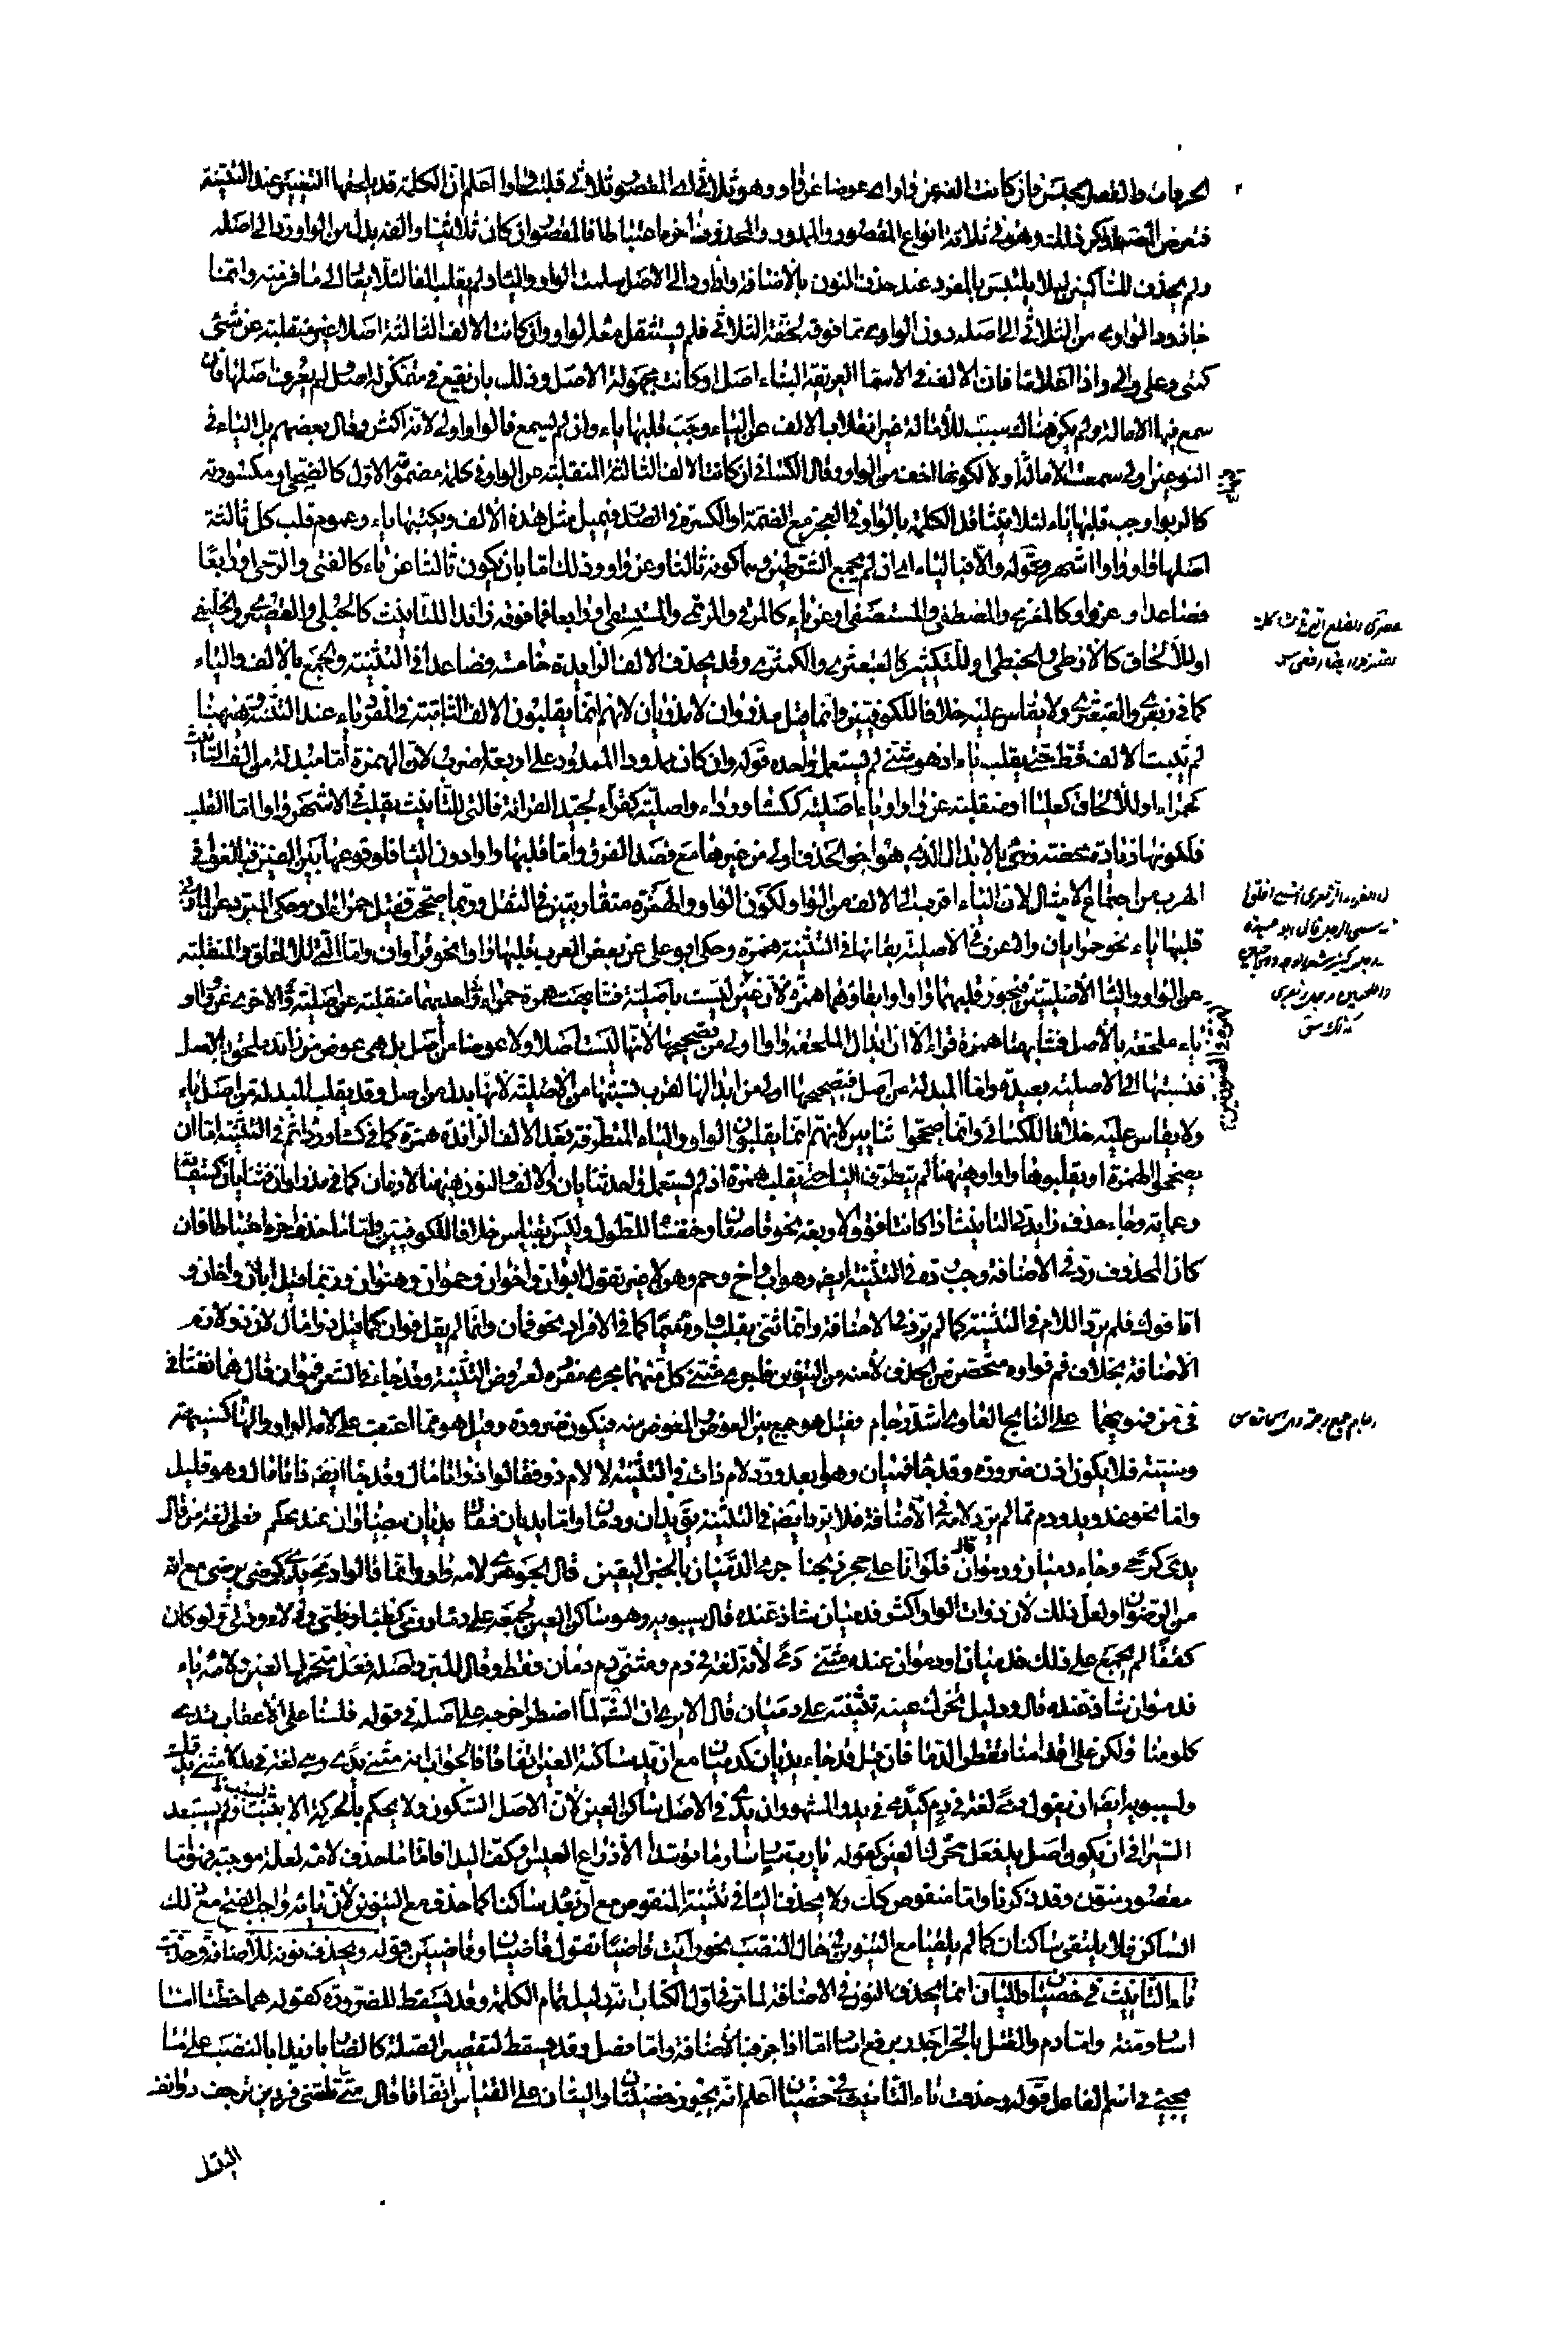 فتعرض المصنف لذكر ذلك وهو في ثلاثة انواع المقصور والممدود والمحذوف اخره اعتباطا فالمقصور ان كان ثلاثيا والفه بدل من الواو رد الى اصله
ولم يحذف للساكنين لئلا يلتبس بالمفرد عند حذف النون بالاضافة واذا رد الى الاصل سلمت الواو والياء ولم يقلب الفا لئلا يعاد الى ما فر منه وانما
جاز رد الواوي من الثلاثي الى اصله دون الواوي مما فوقه لخفة الثلاثي فلم يستثقل معه الواو وان كانت الالف الثالثة اصلا غير منقلبة عن شئ
كمتى وعلى والى واذا اعلاما فان الالف في الاسماء العريقة البناء اصل او كانت مجهولة الاصل وذلك بان يقع في متمكن الاصل لم يعرف اصلها فان
سمع فيها الامالة ولم يكن هناك سبب للامالة غير انقلاب الالف عن الياء وجب قلبها ياء وان لم يسمع فالواو اولى لانه اكثر وقال بعضهم بل الياء في
النوعين اولى سمعت الامالة او لا لكونها اخف من الواو وقال الكسائي ان كانت الالف الثالثة المنقلبة عن الواو في كلمة مضمومة الاول كالضحى او مكسورته
كالربوا وجب قلبها ياء لئلا يتثاقل الكلمة بالواو في العجز مع الضمة او الكسرة في الصدر فيميل مثل هذه الالف ويكتبها ياء وعموم قلب كل ثالثة
اصلها واو واوا اشهر وقوله والا فبالياء اي ان لم يجمع الشرطين وهما كونه ثالثا وعن واو وذلك اما بان يكون ثالثا عن ياء كالفتى والرحى او رابعا
فصاعدا وعن واو كالمغزى والمصطفى والمستصفى او عن ياء كالمرمى والمرتمى والمستسقى او رابعا فما فوقه زائدا للتأنيث كالحبلى والقصيرى والخليفى
او للالحاق كالارطى والحبنطى او للتكثير كالقبعثرى والكمثرى وقد يحذف الالف الزايدة خامسة فصاعدا في التثنية والجمع بالالف والتاء
كما في زبعرى والقبعثرى ولا يقاس عليه خلافا للكوفيين وانما قيل مذروان لا مذريان لانهم انما يقلبون الالف الثابتة في المفرد ياء عند التثنية وههنا
لم تثبت الالف قط حتى يقلب ياء اذ هو مثنى لم يستعمل واحده قوله وان كان ممدودا الممدود على اربعة اضرب لان الهمزة اما مبدلة من الف التأنيث
كحمراء او للالحاق كعلباء او منقلبة عن واو او ياء اصلية ككساء ورداء واصلية كقراء لجيد القرائة فالتي للتأنيث يقلب في الاشهر واوا اما القلب
فلكونها زيادة محضة فهي بالابدال الذي هو اخو الحذف اولى من غيرها مع قصد الفرق واما قلبها واوا دون الياء فلوقوعها بين الفين فبالغوا في
الهرب من اجتماع الامثال لان الياء اقرب الى الالف من الواو ولكون الواو والهمزة متقاربتين في الثقل وربما صحح فقيل حمراءان وحكى المبرد عن المازني
قلبها ياء نحو حمرايان والاعرف في الاصلية بقائها في التثنية همزة وحكى ابو على عن بعض العرب قلبها واوا نحو قراوان واما التي للالحاق والمنقلبة
عن الواو والياء الاصليتين فيجوز قلبهما واوا وابقاؤهما همزة لان عين ليست باصلية فشابهت همزة حمراء واحديهما منقلبة عن اصلية والاخرى عن واو او
ياء ملحقة بالاصل فشابهتا همزة قراء الا ان ابدال الملحقة واوا اولى من تصحيحها لانها ليست اصلا ولا عوضا من اصل بل هي عوض من زايد ملحق بالاصل
فنسبتها الى الاصلية بعيدة واما المبدلة من اصل فتصحيحها اولى من ابدالها لقرب نسبتها من الاصلية لانها بدل من اصل وقد يقلب المبدلة من اصل ياء
ولا يقاس عليه خلافا للكسائي وانما صححوا ثنايين لانهم انما يقلبون الواو والياء المتطرفة بعد الالف الزائدة همزة كما في كساء ورداء ثم في التثنية اما ان
يصححوا الهمزة او يقلبوها واوا وههنا لم يتطرف الياء حتى يقلب همزة اذ لم يستعمل واحد ثنايان والالف والنون ههنا لازمان كما في مذروان فثنايان كسقاية
وعباية وجاء حذف زايدتي التأنيث اذا كانتا فوق الاربعة نحو قاصعان وخنفسان للطول وليس بقياس خلافا للكوفيين واما ما حذف اخره اعتباطا فان
كان المحذوف رد في الاضافة وجب رده في التثنية ايضا وهو اب واخ وحم وهن لا غير تقول ابوان واخوان وحموان وهنوان وربما قيل ابان واخان و
اما فوك فلم يرد اللام في التثنية كما لم يرد في الاضافة وانما ثنى بقلب واوه ميما كما في الافراد نحو فمان وانما لم يقل فوان كما قيل ذوا مال لان ذو لازم
الاضافة بخلاف فم فواوه متحصن من الحذف لأمنه من التنوين فاجرى مثنى كل منهما مجرى مفرده لعروض التثنية وقد جاء في الشعر فموان قال هما نفثا في
في من فمويهما على النابح العاوي اشد رجام فقيل هو جمع بين العوض والمعوض منه فيكون ضرورة وقيل هو مما اعتقب على لامه الواو والهاء كسنيهة
وسنية فلا يكون اذن ضرورة وقد جاء فميان وهو ابعد ورد لام ذات في التثنية لا لام ذو فقالوا ذواتا مال وقد جاء ايضا ذاتا مال وهو قليل
واما نحو غد ويد ودم مما لم يرد لامه في الاضافة فلا يرد ايضا في التثنية نحو يدان ودمان واما يديان فقال يديان بيضاوان عند محكم فعلى لغة من قال
يدى كرحى وجاء دميان ودموان قال فلو انا على حجر ذبحنا جرى الدميان بالخبر اليقين قال الجوهري لامه واو وانما قالوا دمى يدمى كرضى يرضى مع انه
من الرضوان ولعل ذلك لان ذوات الواو اكثر فدميان شاذ عنده قال سيبويه وهو ساكن العين لجمعه على دماء ودمى كظباء وظبى ودلاء ودلى ولو كان
كقفا لم يجمع على ذلك فدميان او دموان عنده مثنى دمى لانه لغة في دم ومثنى دم دمان فقط وقال المبرد اصله فعل متحرك العين ولامه ياء
فدموان شاذ عنده قال ودليل تحرك عينه تثنيته على دميان قال الا ترى ان الشاعر لما اضطر اخرجه على اصله في قوله فلسنا على الاعقاب تدمى
كلومنا ولكن على اقدامنا تقطر الدما فان قيل قد جاء يديان كدميان مع ان يد ساكنة العين اتفاقا فالجواب انه مثنى يدى وهي لغة في يد لا مثنى يد
ولسيبويه ايضا ان يقول دمى لغة في دم كيدى في يد والمشهور ان يد في الاصل ساكن العين لان الاصل السكون ولا يحكم بالحركة الا بثبت ولم يستبعد
السيرافي ان يكون اصل يد فعل متحرك العين كقوله يا رب سار بات ما توسدا الا ذراع العيس او كف اليدا
مقصور منون وقد ذكرنا ولا يحذف الياء في تثنية المنقوص مع ان بعد ساكنا كما حذف مع التنوين لان يائه واجب الفتح مع ذلك
الساكن فلا يلتقى ساكنان كما لم يلتقيا مع التنوين في حال النصب نحو رايت قاضيا تقول قاضيان وقاضيين قوله ويحذف نونه للاضافة وحذفت
تاء التأنيث في خصيان واليان انما يحذف النون في الاضافة لما مر في اول الكتاب انه دليل تمام الكلمة وقد يسقط للضرورة كقوله هما خطتا اما
اسار ومنة واما دم والقتل بالحر اجدر برفع اسار اما اذا جر فبالاضافة واما فصل وقد يسقط لتقصير الصلة كالضاربا زيدا بالنصب على ما
يجئ في اسم الفاعل قوله وحذفت تاء التأنيث في خصيان اعلم انه يجوز خصيتان واليتان على القياس اتفاقا قال متى تلقني فردين ترجف روانف